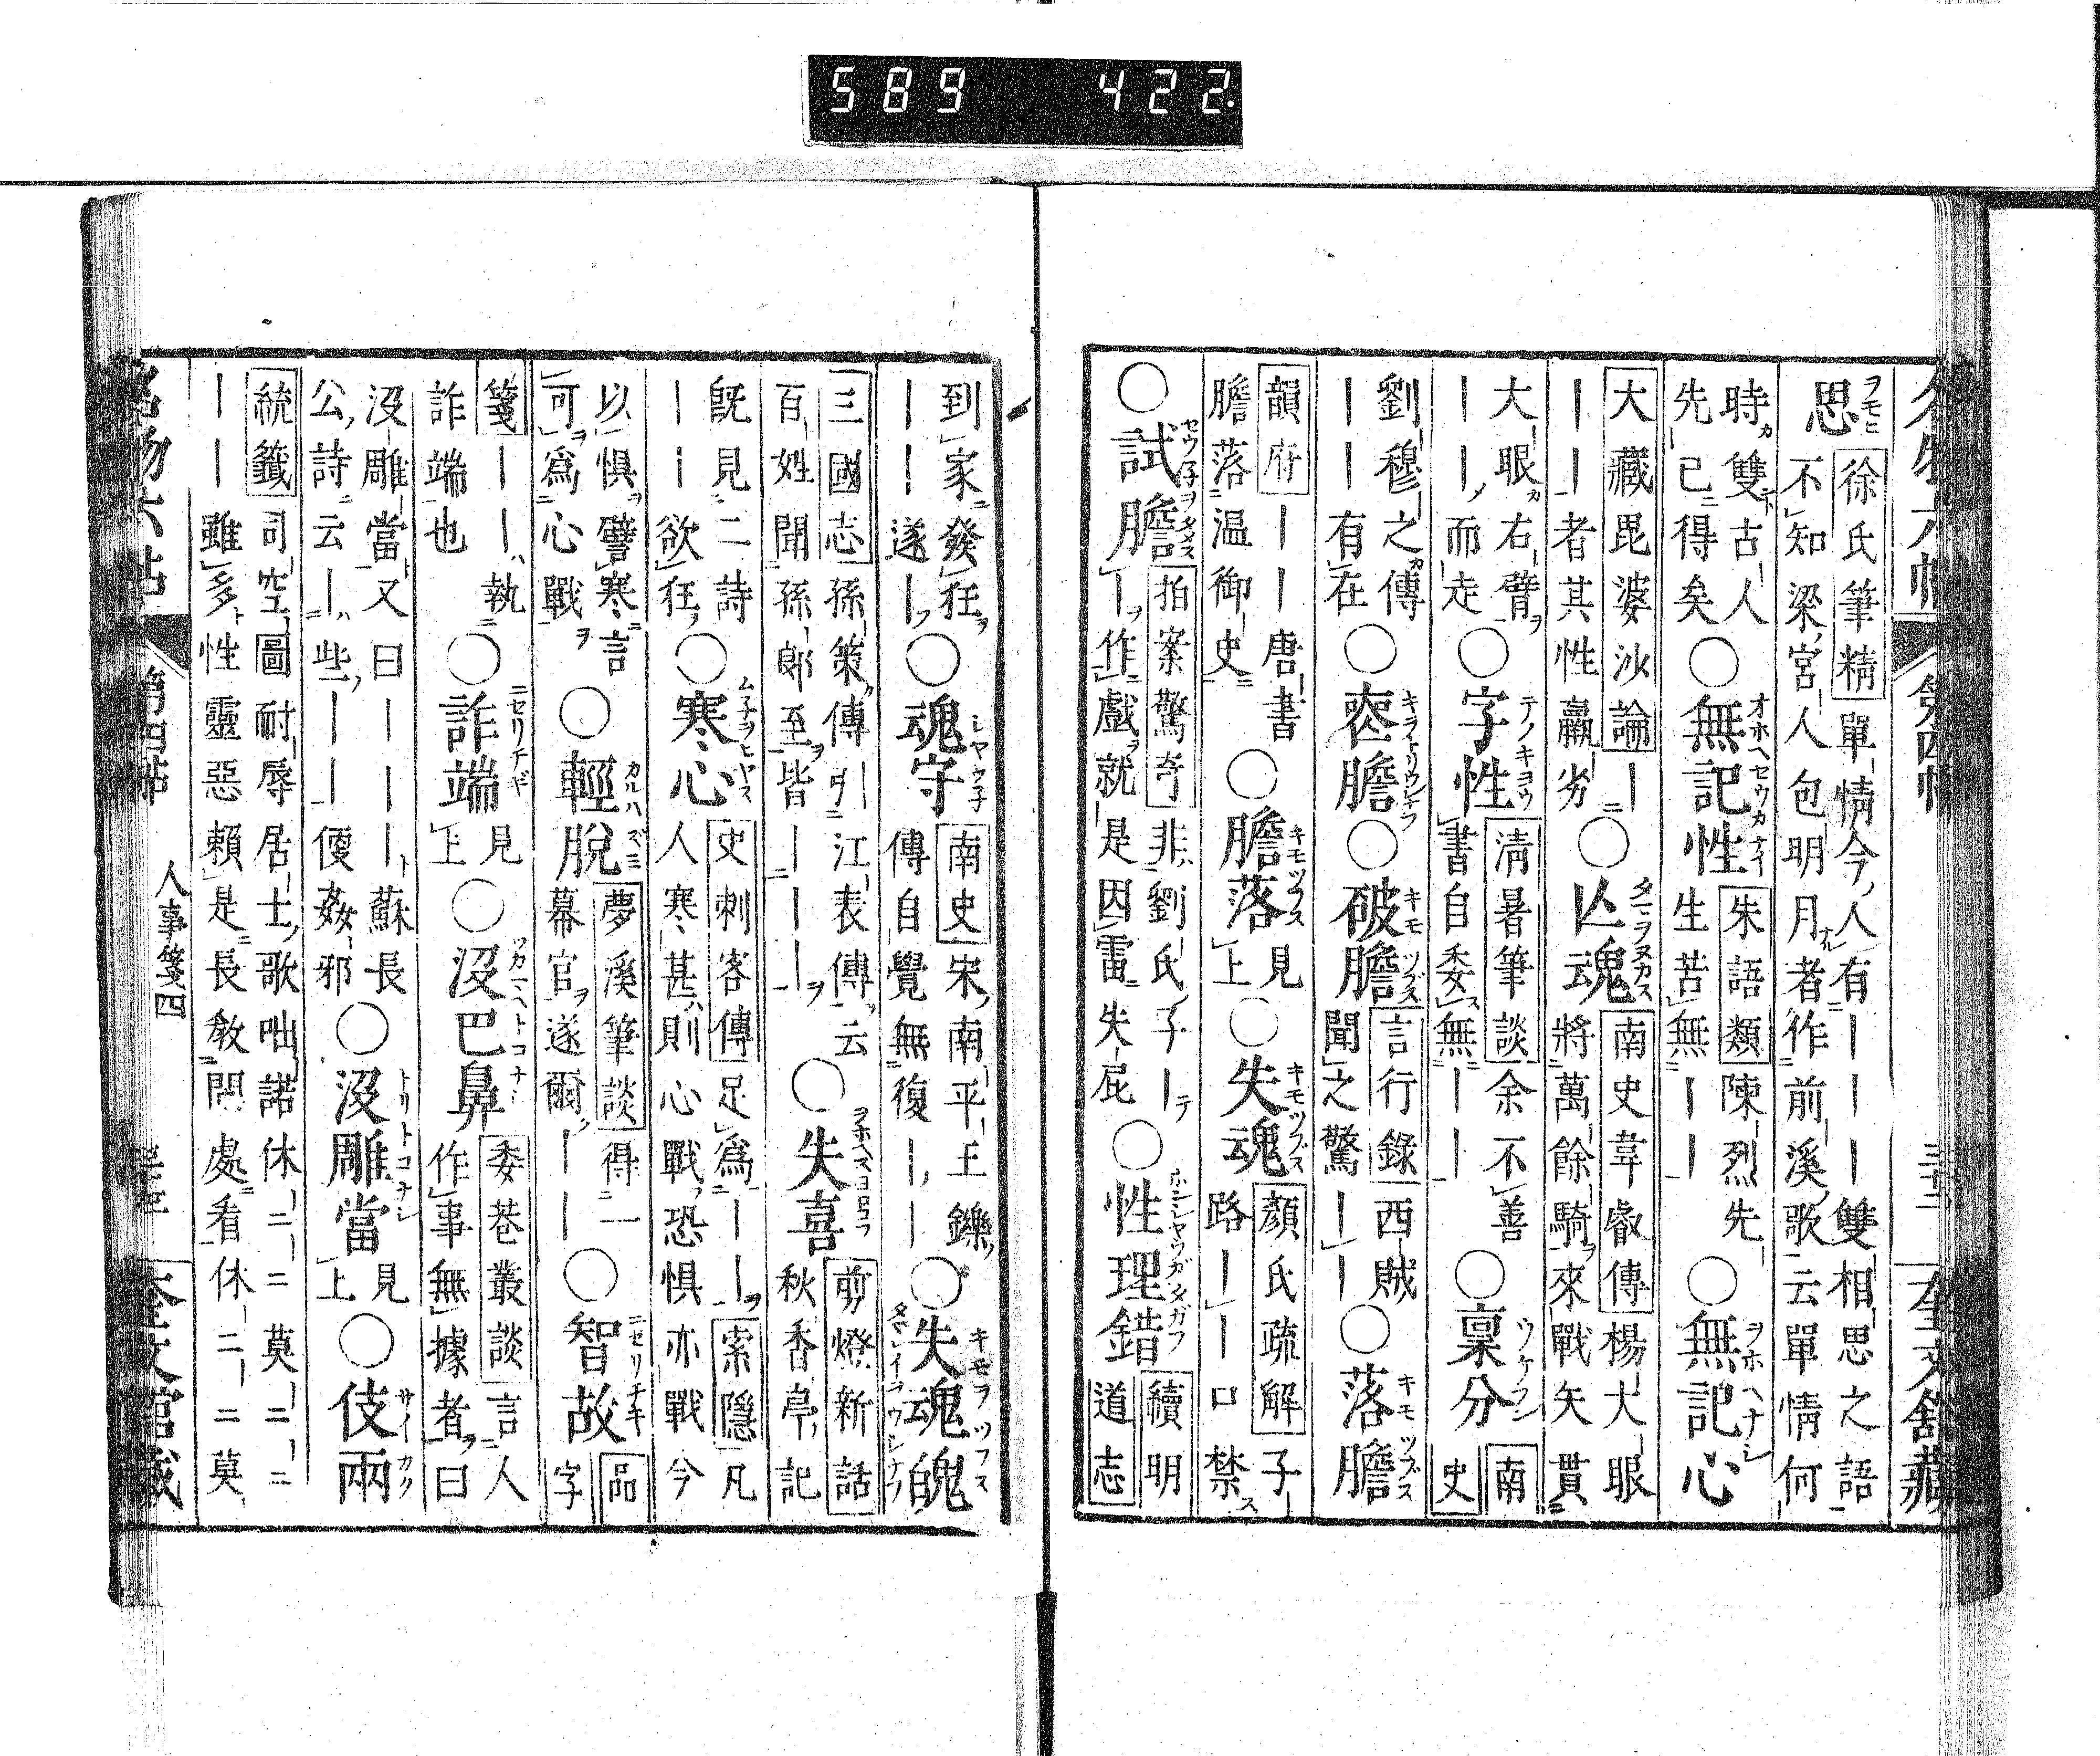 589 422
名物六帖 第四帖 三十二 奎文舘藏
思 徐氏筆精單情今人有｜｜｜雙相思之語
不知梁宮人包明月者作前溪歌云單情何
時雙古人 ○無記性 朱語類陳烈先 ○無記心
先已得矣 生苦無｜｜
大藏毘婆沙論｜ ○亾魂 南史韋叡傳楊大眼
｜｜者其性羸劣 將萬餘騎來戰矢貫
大眼右臂 ○字性 淸暑筆談余不善 ○稟分 南
｜｜而走 書自委無｜｜ 史
劉穆之傳 ○喪膽 ○破膽 言行錄西賊 ○落膽
｜｜有在 聞之驚｜｜
韻府｜｜唐書 ○膽落 見 ○失魂 顏氏疏解子
膽落温御史 上 路｜｜口禁
○試膽 拍案驚奇非劉氏子｜ ○性理錯 續明
｜作戲就是因雷失屁 道志
到家發狂 ○魂守 南史宋南平王鑠 ○失魂魄
｜｜遂｜ 傳自覺無復｜｜
三國志孫策傳引江表傳云 ○失喜 剪燈新話
百姓聞孫郞至皆｜｜｜ 秋香亭記
旣見二詩 ○寒心 史刺客傳足爲｜｜索隱凡
｜｜欲狂 人寒甚則心戰恐惧亦戰今
以惧譬寒言 ○輕脫 夢溪筆談得一 ○智故 品
可爲心戰 幕官遂爾｜｜ 字
箋｜｜執 ○詐端 見 ○沒巴鼻 委巷叢談言人
詐端也 上 作事無據者曰
沒雕當又曰｜｜｜蘇長 ○沒雕當 見 ○伎兩
公詩云｜些｜｜｜便姦邪 上
統籤司空圖耐辱居士歌咄諾休二二莫二二
｜｜雖多性靈惡賴是長敎閑處看休二二莫
名物六帖 第四帖 人事箋四 奎文舘藏